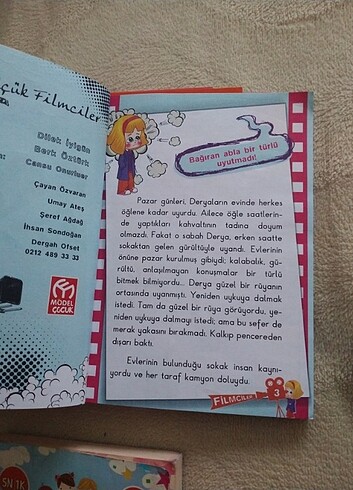 çük Filmciler
Dilek İyigün
Berk Öztürk
Cansu Onutuer
Çayan Özvaran
Umay Ateş
Şeref Ağdağ
İhsan Sondoğan
Dergah Ofset
0212 489 33 33
MODEL
ÇOCUK
Bağıran abla bir türlü
uyutmadı!
Pazar günleri, Deryaların evinde herkes
öğlene kadar uyurdu. Ailece öğle saatlerin-
de yaptıkları kahvaltının tadına doyum
olmazdı. Fakat o sabah Derya, erken saatte
sokaktan gelen gürültüyle uyandı. Evlerinin
önüne pazar kurulmuş gibiydi; kalabalık, gü-
rültü, anlaşılmayan konuşmalar bir türlü
bitmek bilmiyordu... Derya güzel bir rüyanın
ortasında uyanmıştı. Yeniden uykuya dalmak
istedi. Tam da güzel bir rüya görüyordu, ye-
niden uykuya dalmayı istedi; ama bu sefer de
merak yakasını bırakmadı. Kalkıp pencereden
dışarı baktı.
Evlerinin bulunduğu sokak insan kaynı-
yordu ve her taraf kamyon doluydu.
FİLMCİLER
3
5N 1K